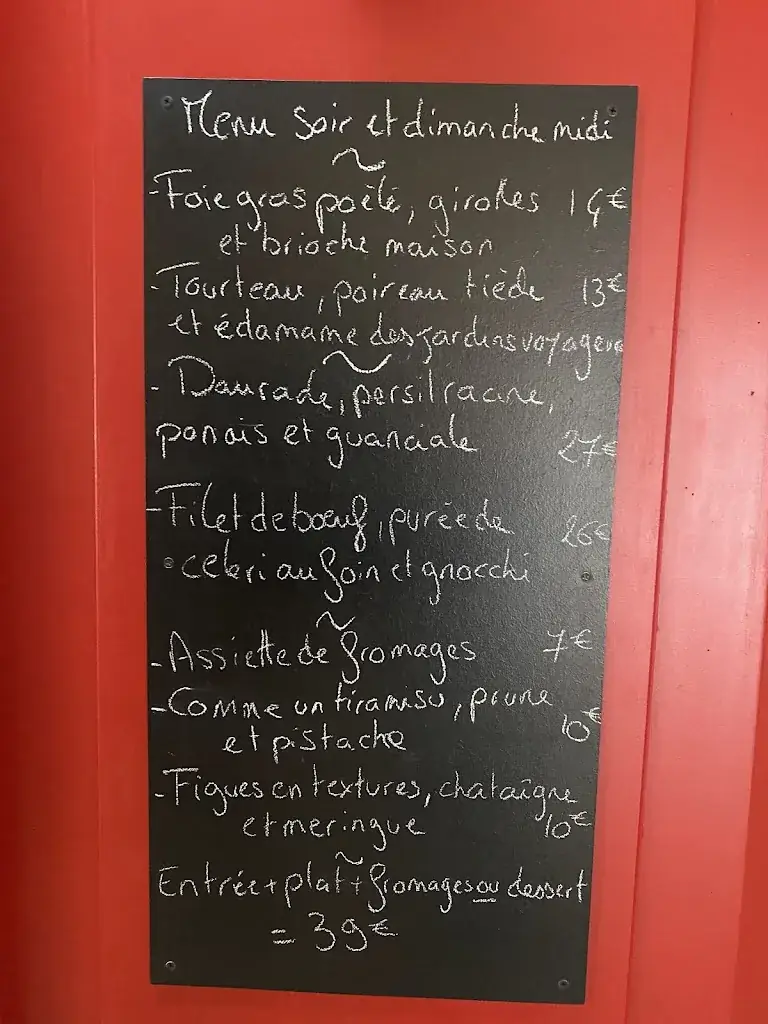 Menu Soir et dimanche midi
~
-Foie gras poêlé, girolles 14€
et brioche maison
-Tourteau, poireau tiède 13€
et édamame des jardins voyageurs
~
- Daurade, persil racine,
panais et guanciale 27€
-Filet de bœuf, purée de 26€
celeri au foin et gnocchi
~
-Assiette de fromages 7€
-Comme un tiramisu, prune
et pistache 10€
-Figues en textures, chataîgne
et meringue 10€
~
Entrée + plat + fromages ou dessert
= 39€